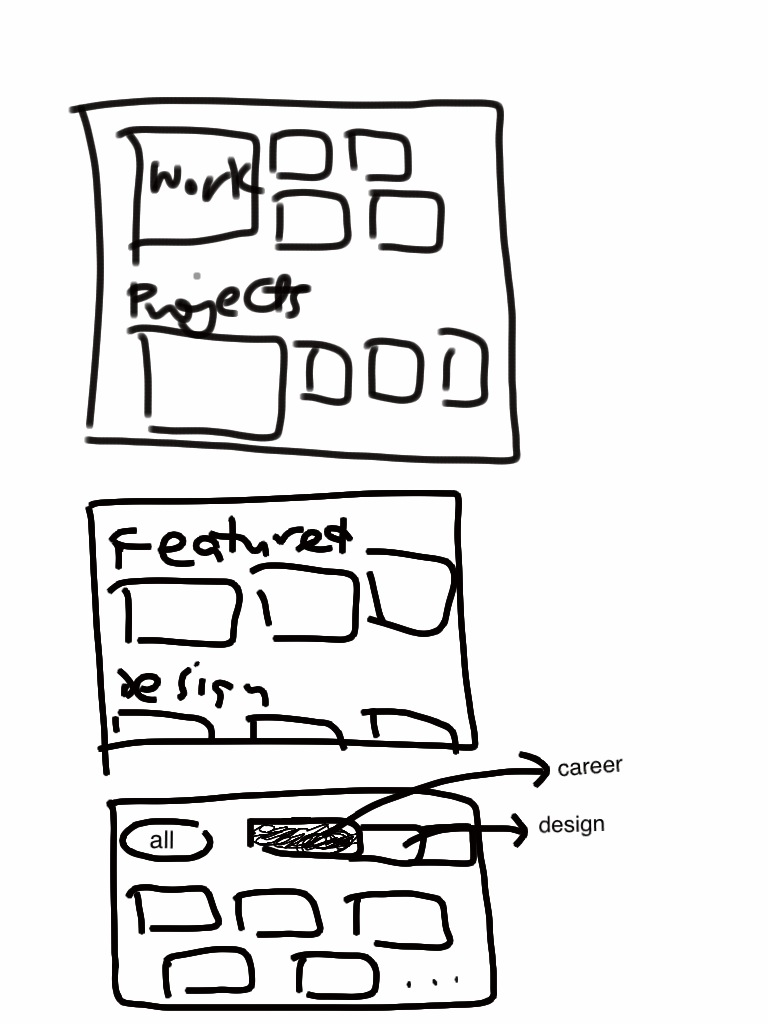 Work
Projects
Featured
Design
career
design
all